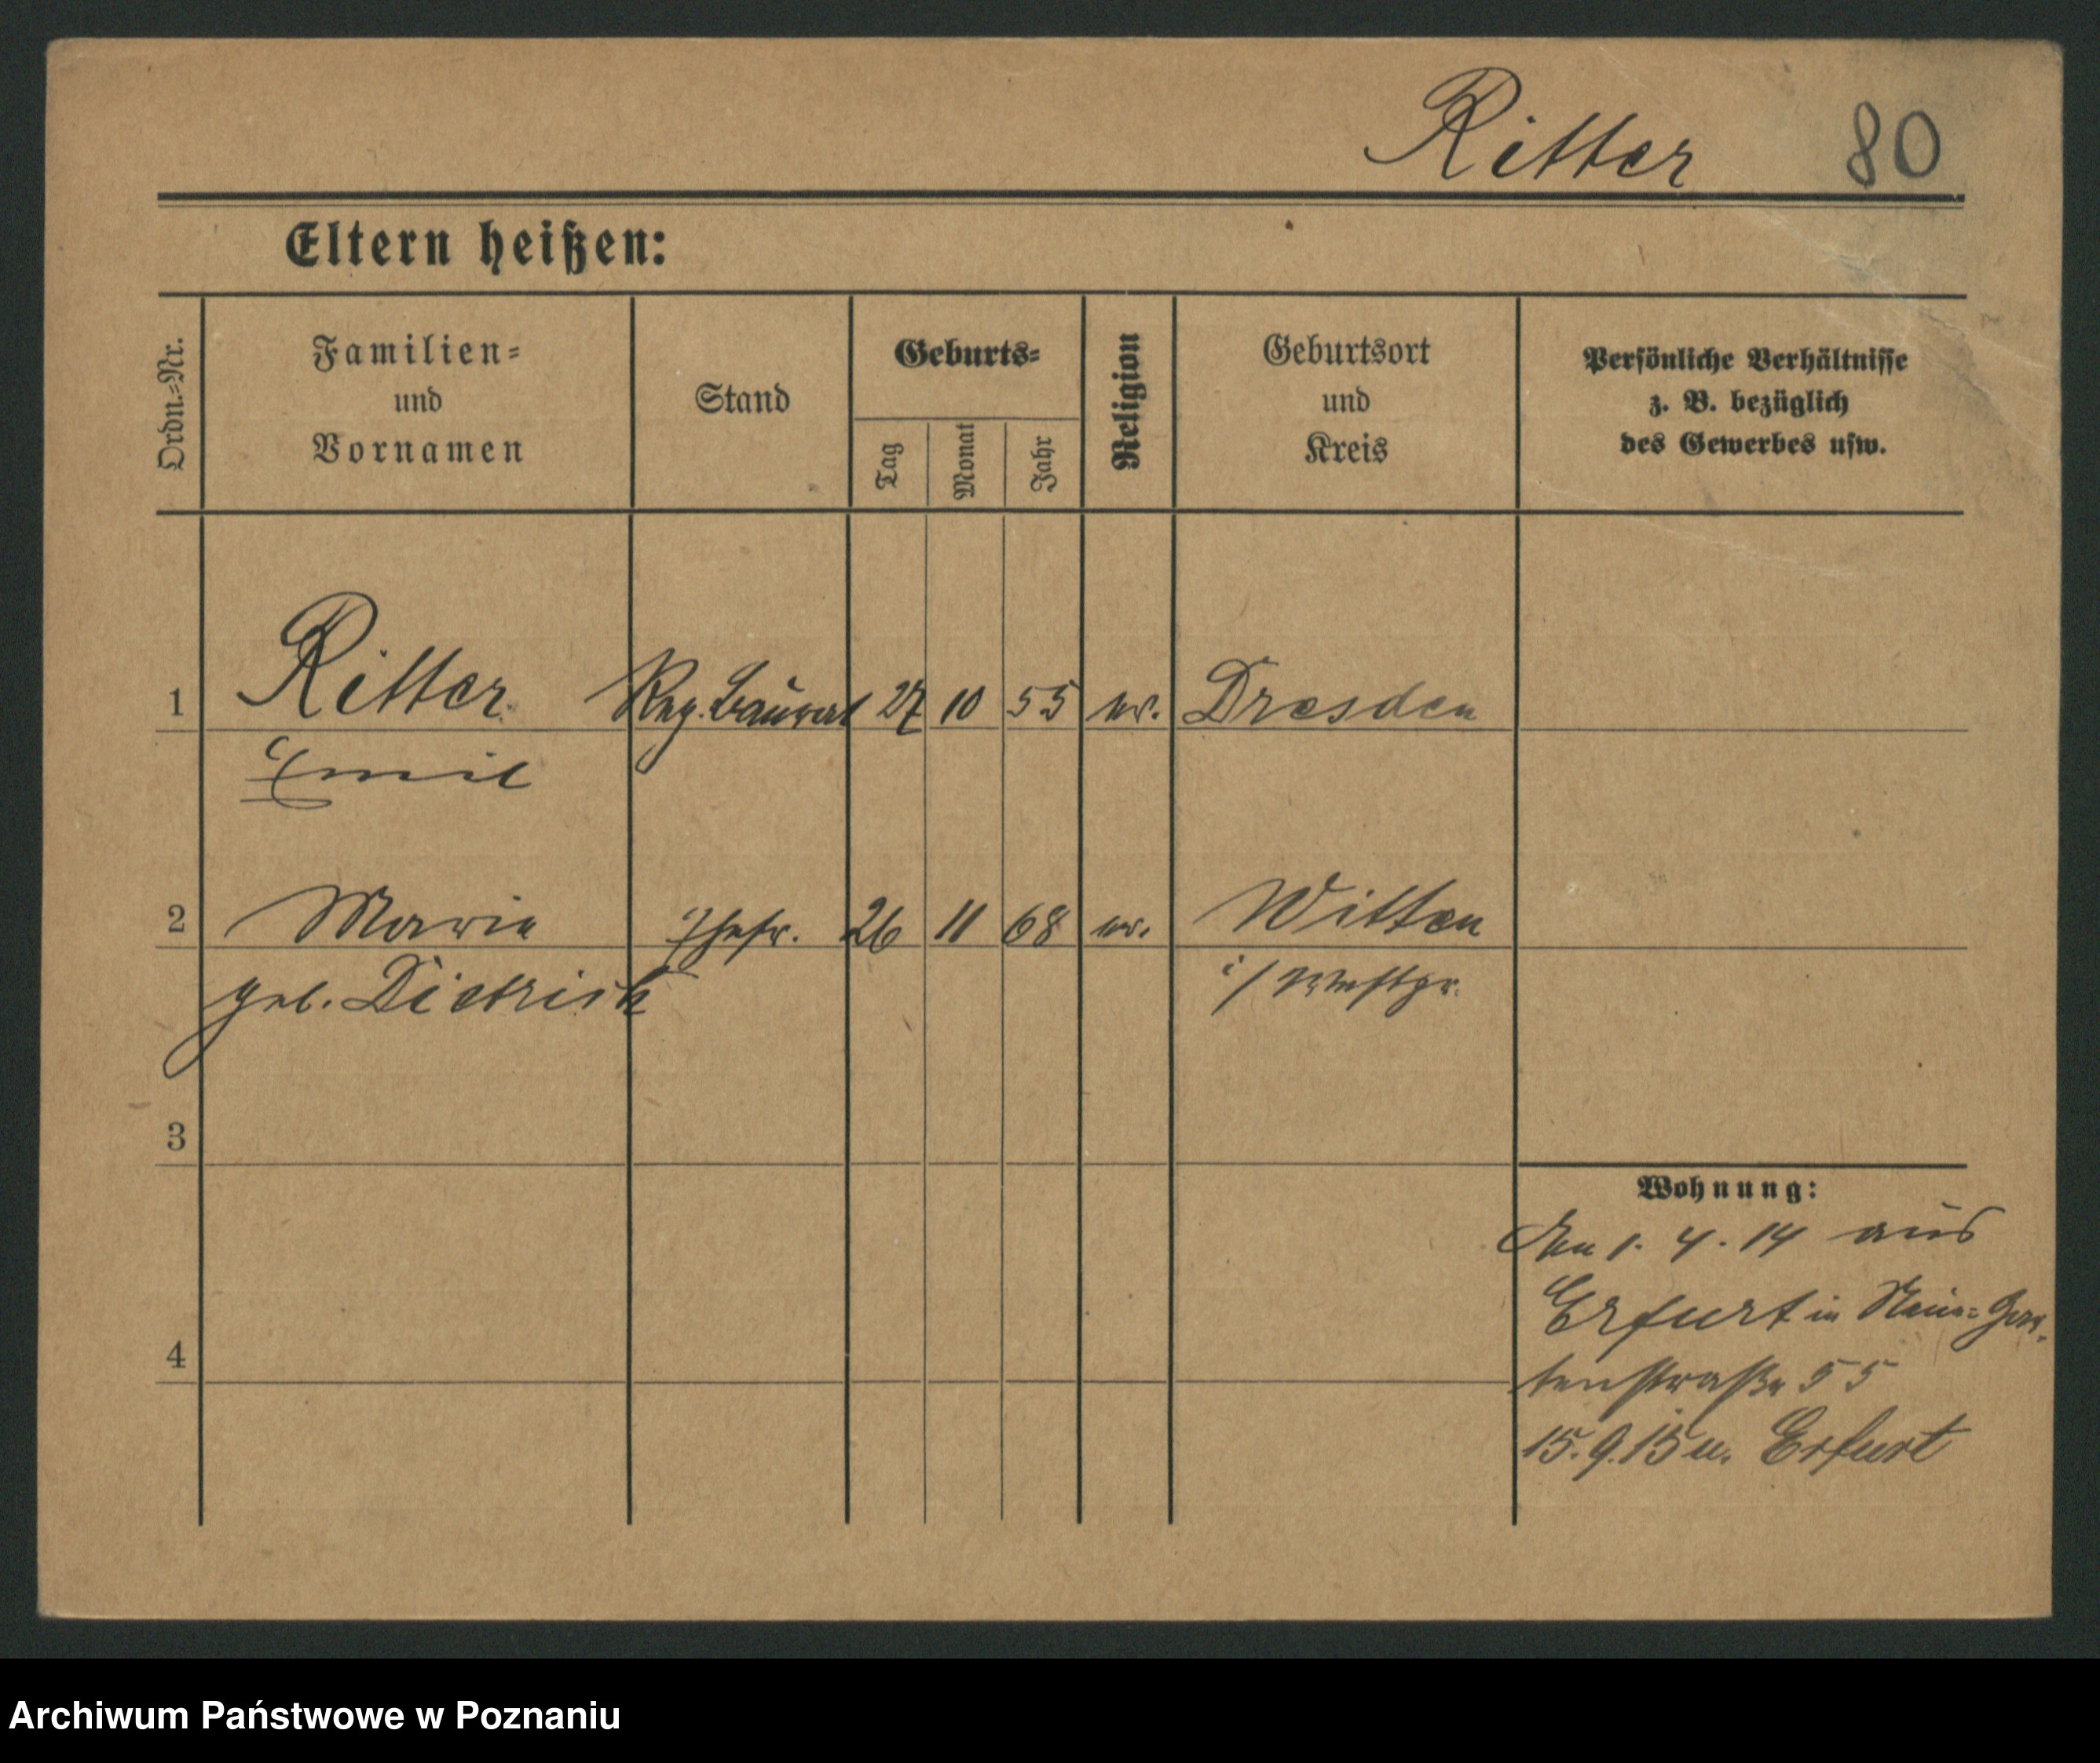 Ritter 80
Eltern heißen:
Ordn.=Nr.
Familien=
und
Vornamen
Stand
Geburts=
Tag
Monat
Jahr
Religion
Geburtsort
und
Kreis
Persönliche Verhältnisse
z. B. bezüglich
des Gewerbes usw.
1 Ritter Reg. Baurat 27 10 55 ev. Dresden
Emil
2 Marie Ehefr. 26 11 68 ev. Witten
geb. Dietrich i/ Westpr.
3
Wohnung:
1. 4. 14 aus
Erfurt in Gar-
4
tenstraße 55
15. 9. 15 u. Erfurt
Archiwum Państwowe w Poznaniu